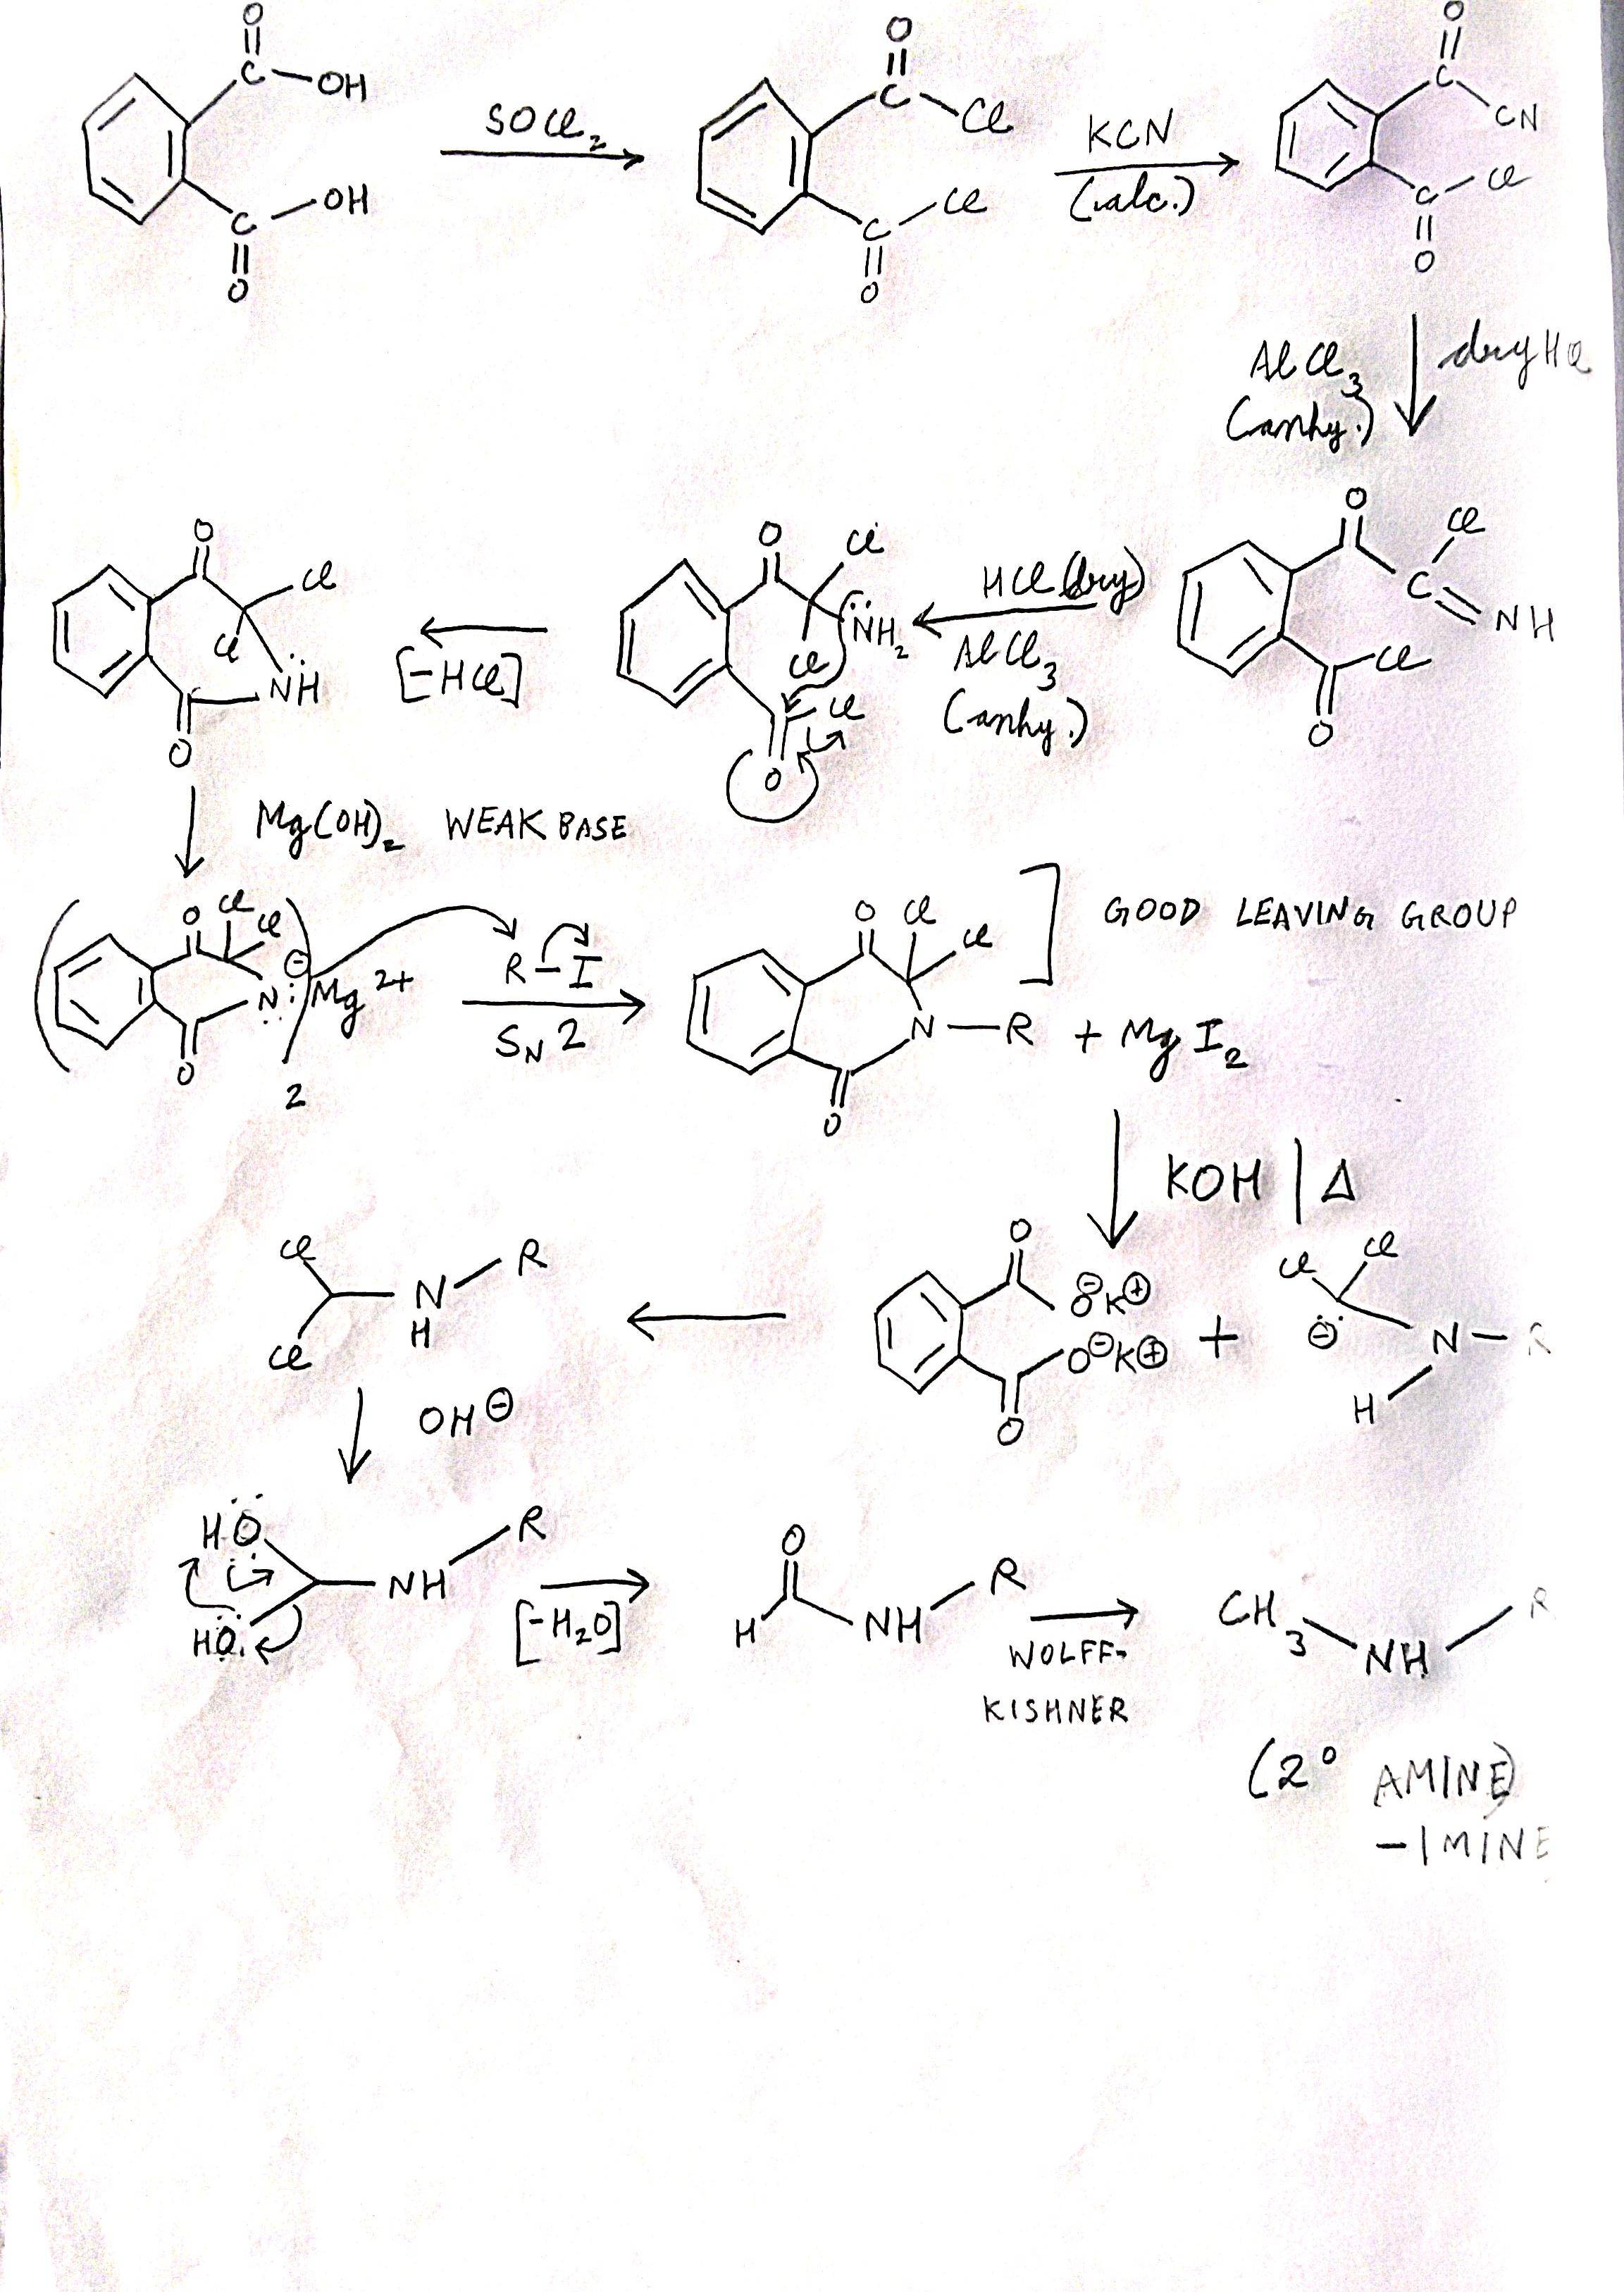 O
C OH
C OH
O
SOCl₂
O
C Cl
C Cl
O
KCN
(alc.)
O
C CN
C Cl
O
AlCl₃ dry HCl
(anhy.)
O Cl
C NH
Cl
O
HCl (dry)
AlCl₃
(anhy.)
O Cl
NH₂
Cl
Cl
O
[-HCl]
O
Cl
Cl
NH
O
Mg(OH)₂ WEAK BASE
O Cl Cl
N: ⊖
O
2
Mg²⁺
R–I
SN2
O Cl Cl
N–R
O
+ MgI₂
] GOOD LEAVING GROUP
KOH | Δ
O
O⊖K⊕
O⊖K⊕
O
+
Cl Cl
⊖
N–R
H
Cl
Cl
N–R
H
OH⊖
HO
HO
NH R
[-H₂O]
O
H NH R
WOLFF-
KISHNER
CH₃ NH R
(2° AMINE)
-IMINE